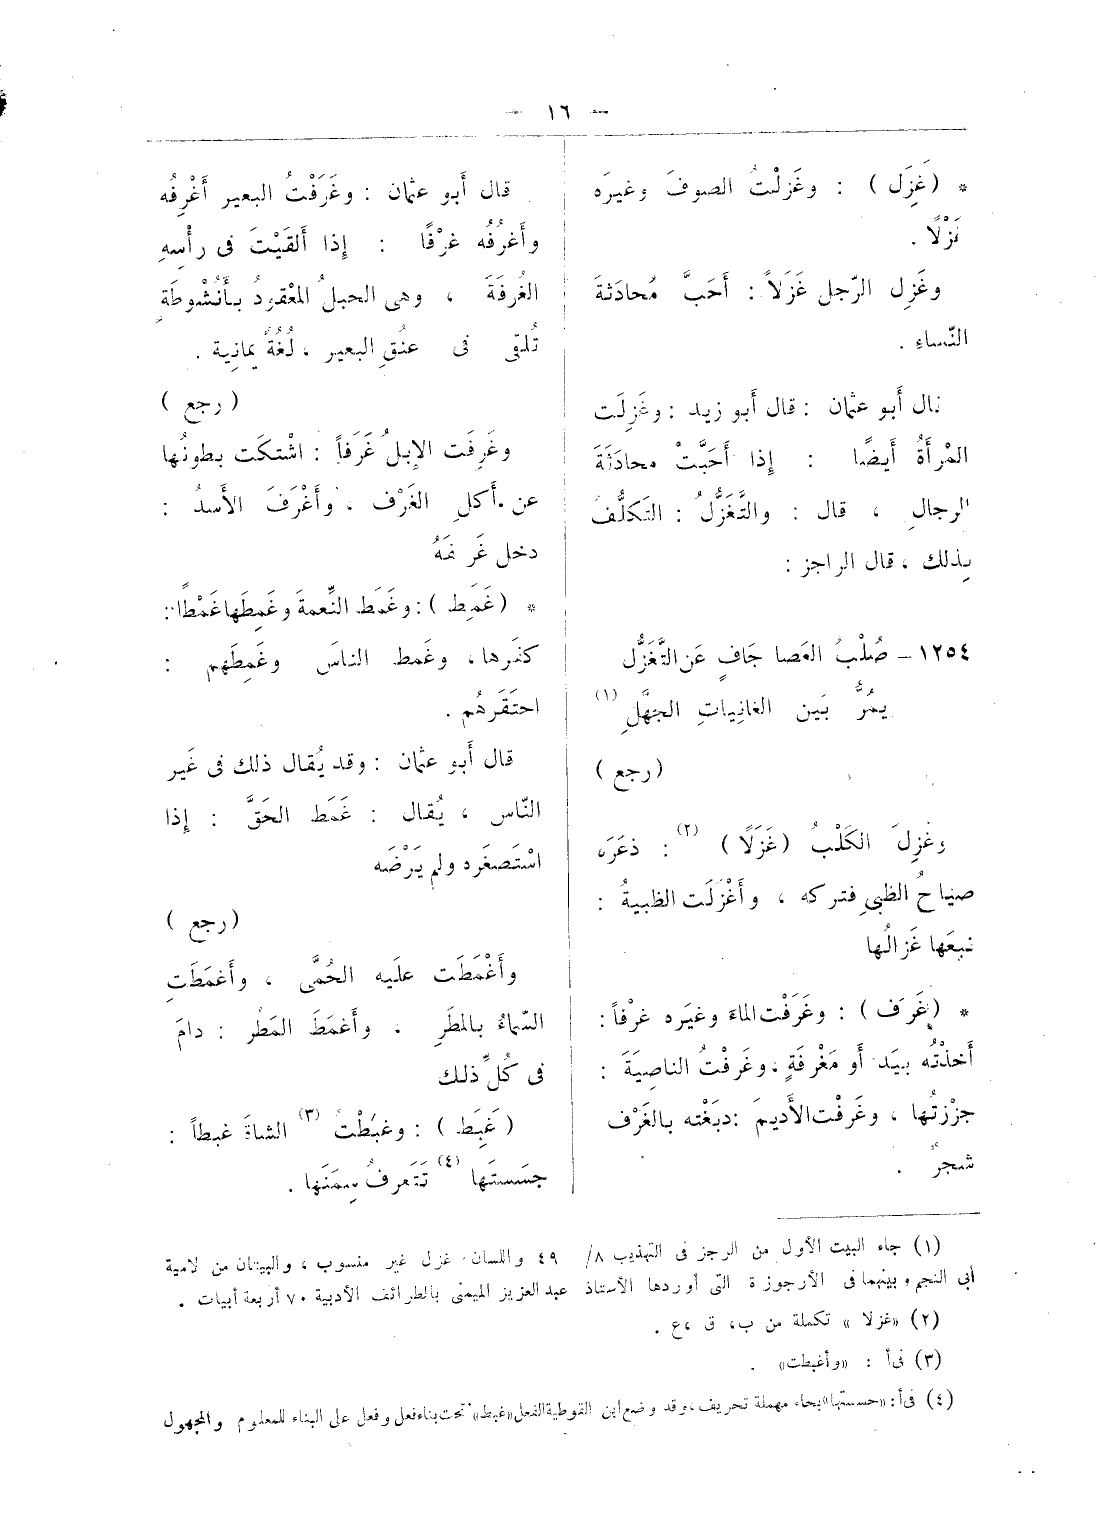 — ١٦ —
* (غَزِل) : وغَزلْتُ الصوفَ وغيرَه
غَزْلًا .
وغَزِل الرّجل غَزَلاً : أَحَبَّ مُحادَثةَ
النّساءِ .
قال أَبو عثمان : قال أَبو زيد : وغَزِلَت
المْرأَةُ أَيضًا : إِذا أَحَبَّتْ محادَثَةَ
الرجالِ ، قال : والتَّغَزُّلُ : التَكلُّفُ
بِذلك ، قال الراجز :
١٢٥٤ – صُلْبُ العَصا جَافٍ عَن التَّغَزُّل
يمُرُّ بَين الغانِياتِ الجهَّلِ (١)
(رجع )
وغَزِلَ الكَلْبُ (غَزَلًا ) (٢) : ذعَرَه
صياحُ الظبيِ فتركه ، وأَغْزَلَت الظبيةُ :
تبِعَها غَزالُها
* (غَرَف ) : وغَرَفْت الماءَ وغيَره غرْفاً :
أَخذْتُه بيَد أَو مَغْرفَةٍ ، وغَرفْتُ الناصِيَةَ :
جزْزتُها ، وغَرفْت الأَديمَ : دبَغْته بالغَرْف
شجرٌ .
قال أَبو عثمان : وغَرَفْتُ البعير أَغْرِفُه
وأَغرُفُه غرْفًا : إِذا أَلقَيْتَ فى رأْسِهِ
الغُرفَةَ ، وهى الحبلُ المعْقودُ بأُنْشُوطَةٍ
تُلقى فى عنُقِ البعير ، لُغَةٌ يمانِية .
(رجع )
وغَرِفَت الإِبلُ غَرَفاً : اشْتكَت بطونُها
عن أَكلِ الغَرْف ، وأَغْرَفَ الأَسدُ :
دخل غَريفَهُ
* (غَمَط ) : وغَمَط النِّعمةَ وغَمِطَها غَمْطًا :
كفَرها ، وغَمط الناسَ وغَمِطَهم :
احتَقَرهُم .
قال أَبو عثمان : وقد يُقال ذلك فى غَير
النّاس ، يُقال : غَمَط الحَقَّ : إِذا
اسْتَصغَره ولم يَرْضَه
(رجع )
وأَغْمَطَت علَيه الحُمَّى ، وأَغمَطَتِ
السَّماءُ بالمطَرِ ، وأَغمَطَ المَطَر : دامَ
فى كُلِّ ذلك
(غَبِط ) : وغبَطْتُ (٣) الشاةَ غبطاً :
جسَستَها (٤) تَتَعرفُ سِمَنَها .
(١) جاء البيت الأول من الرجز فى التهذيب ٨/ ٤٩ واللسان غزل غير منسوب ، والبيتان من لامية
أبى النجم وبينهما فى الأرجوزة التى أوردها الأستاذ عبد العزيز الميمنى بالطرائف الأدبية ٧٠ أربعة أبيات .
(٢) «غزلا » تكملة من ب ، ق ، ع .
(٣) فى أ : «وأغبطت» .
(٤) فى أ : «حسستها» بحاء مهملة تحريف ، وقد وضع ابن القوطية الفعل «غبط» تحت بناء فعل وفعل على البناء للمعلوم والمجهول